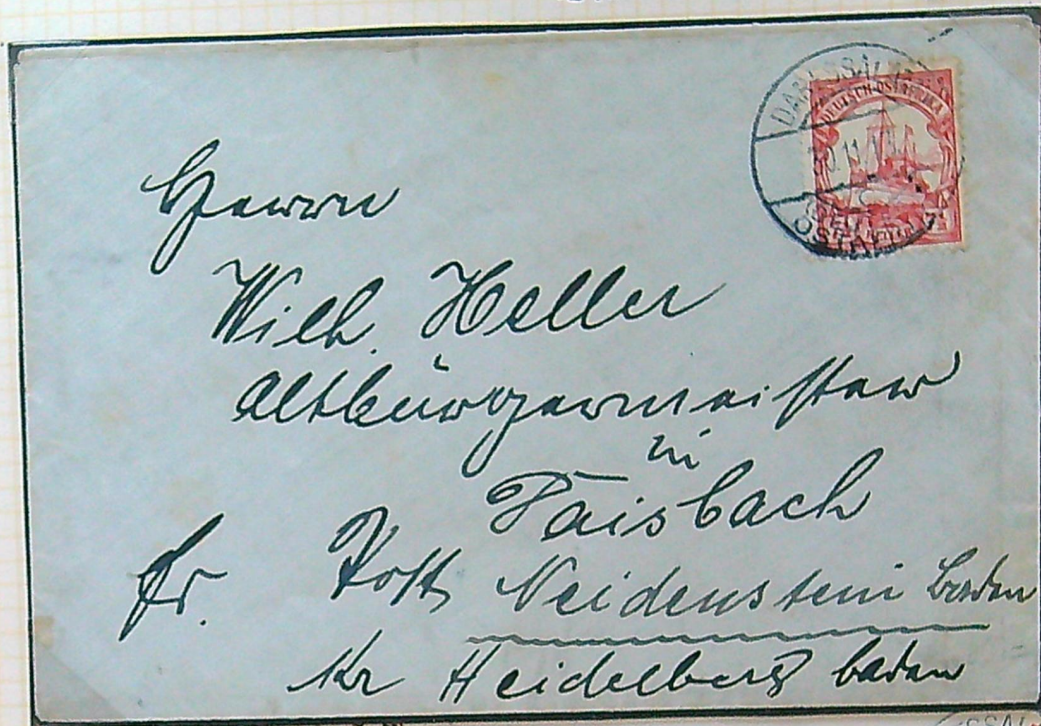 DARESSALAM
DEUTSCH-OSTAFRIKA
11
7½ HELLER 7½
Herrn
Wilh. Heller
Altbürgermeister
in
Daisbach
fr. Post Neidenstein Baden
Kr Heidelberg baden